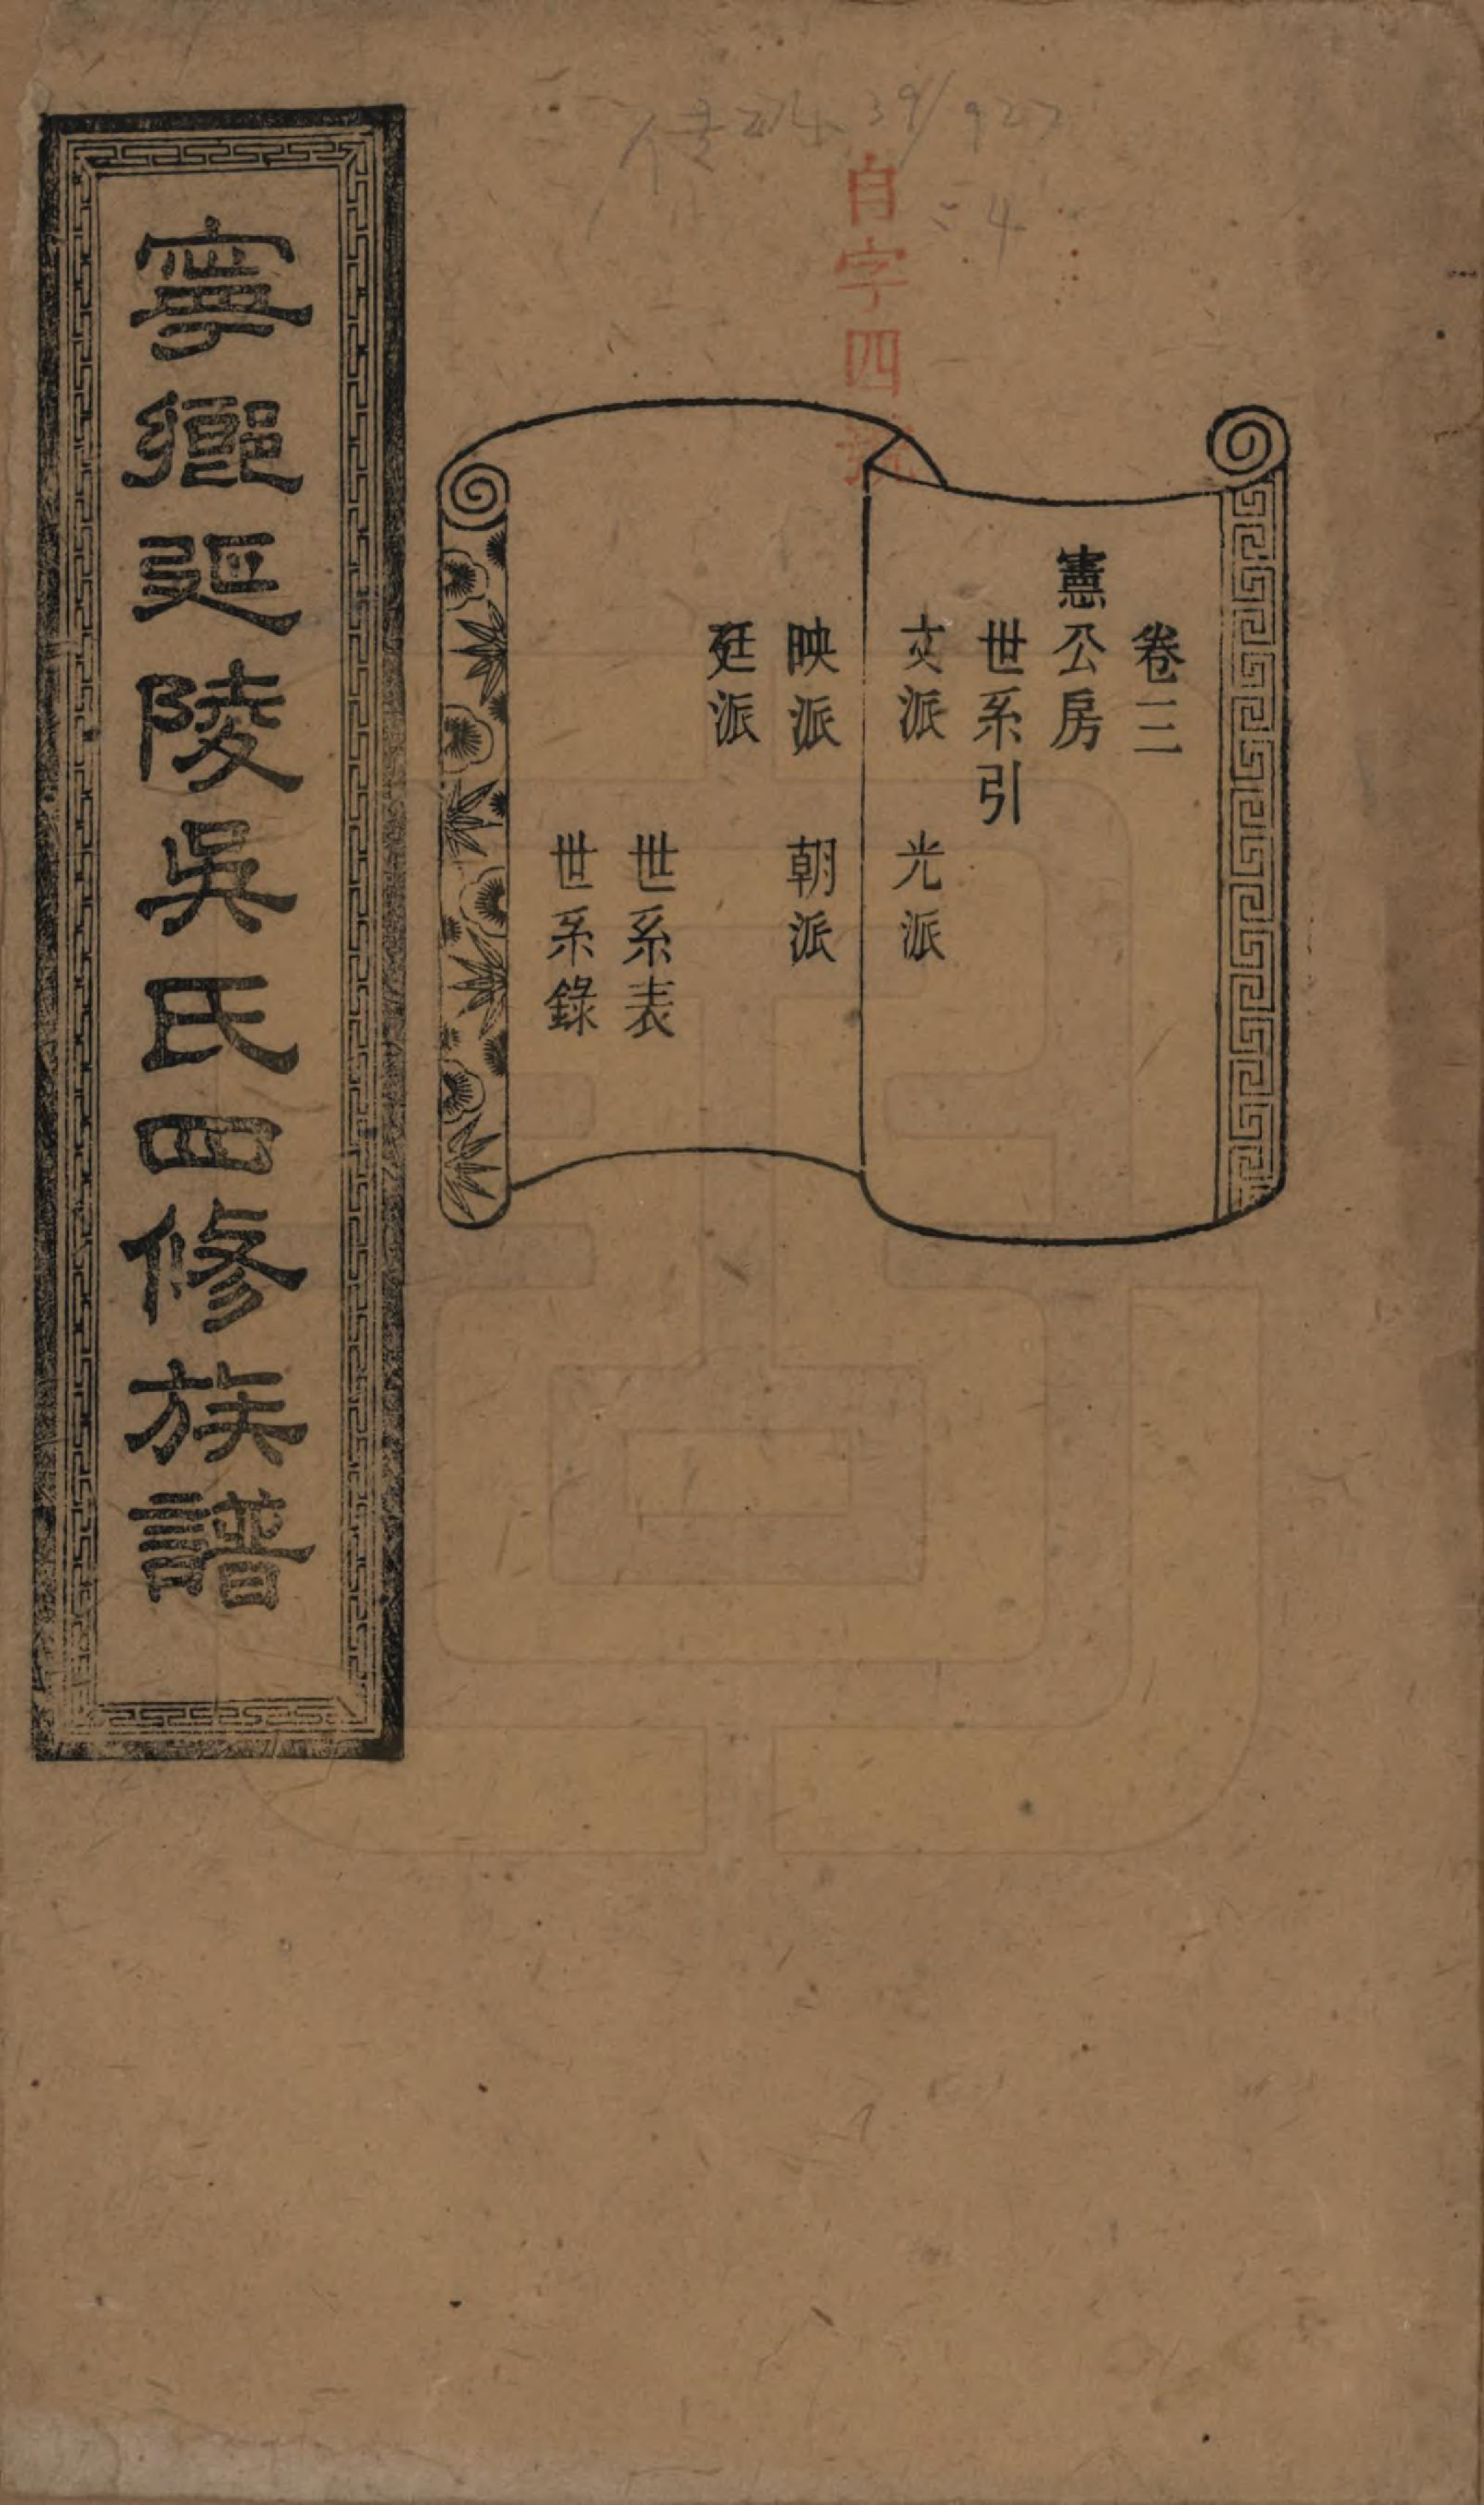 卷三
憲公房
世系引
文派 光派
映派 朝派
廷派
世系表
世系錄
寧鄉延陵吳氏四修族譜
自字四號
39/922
:4